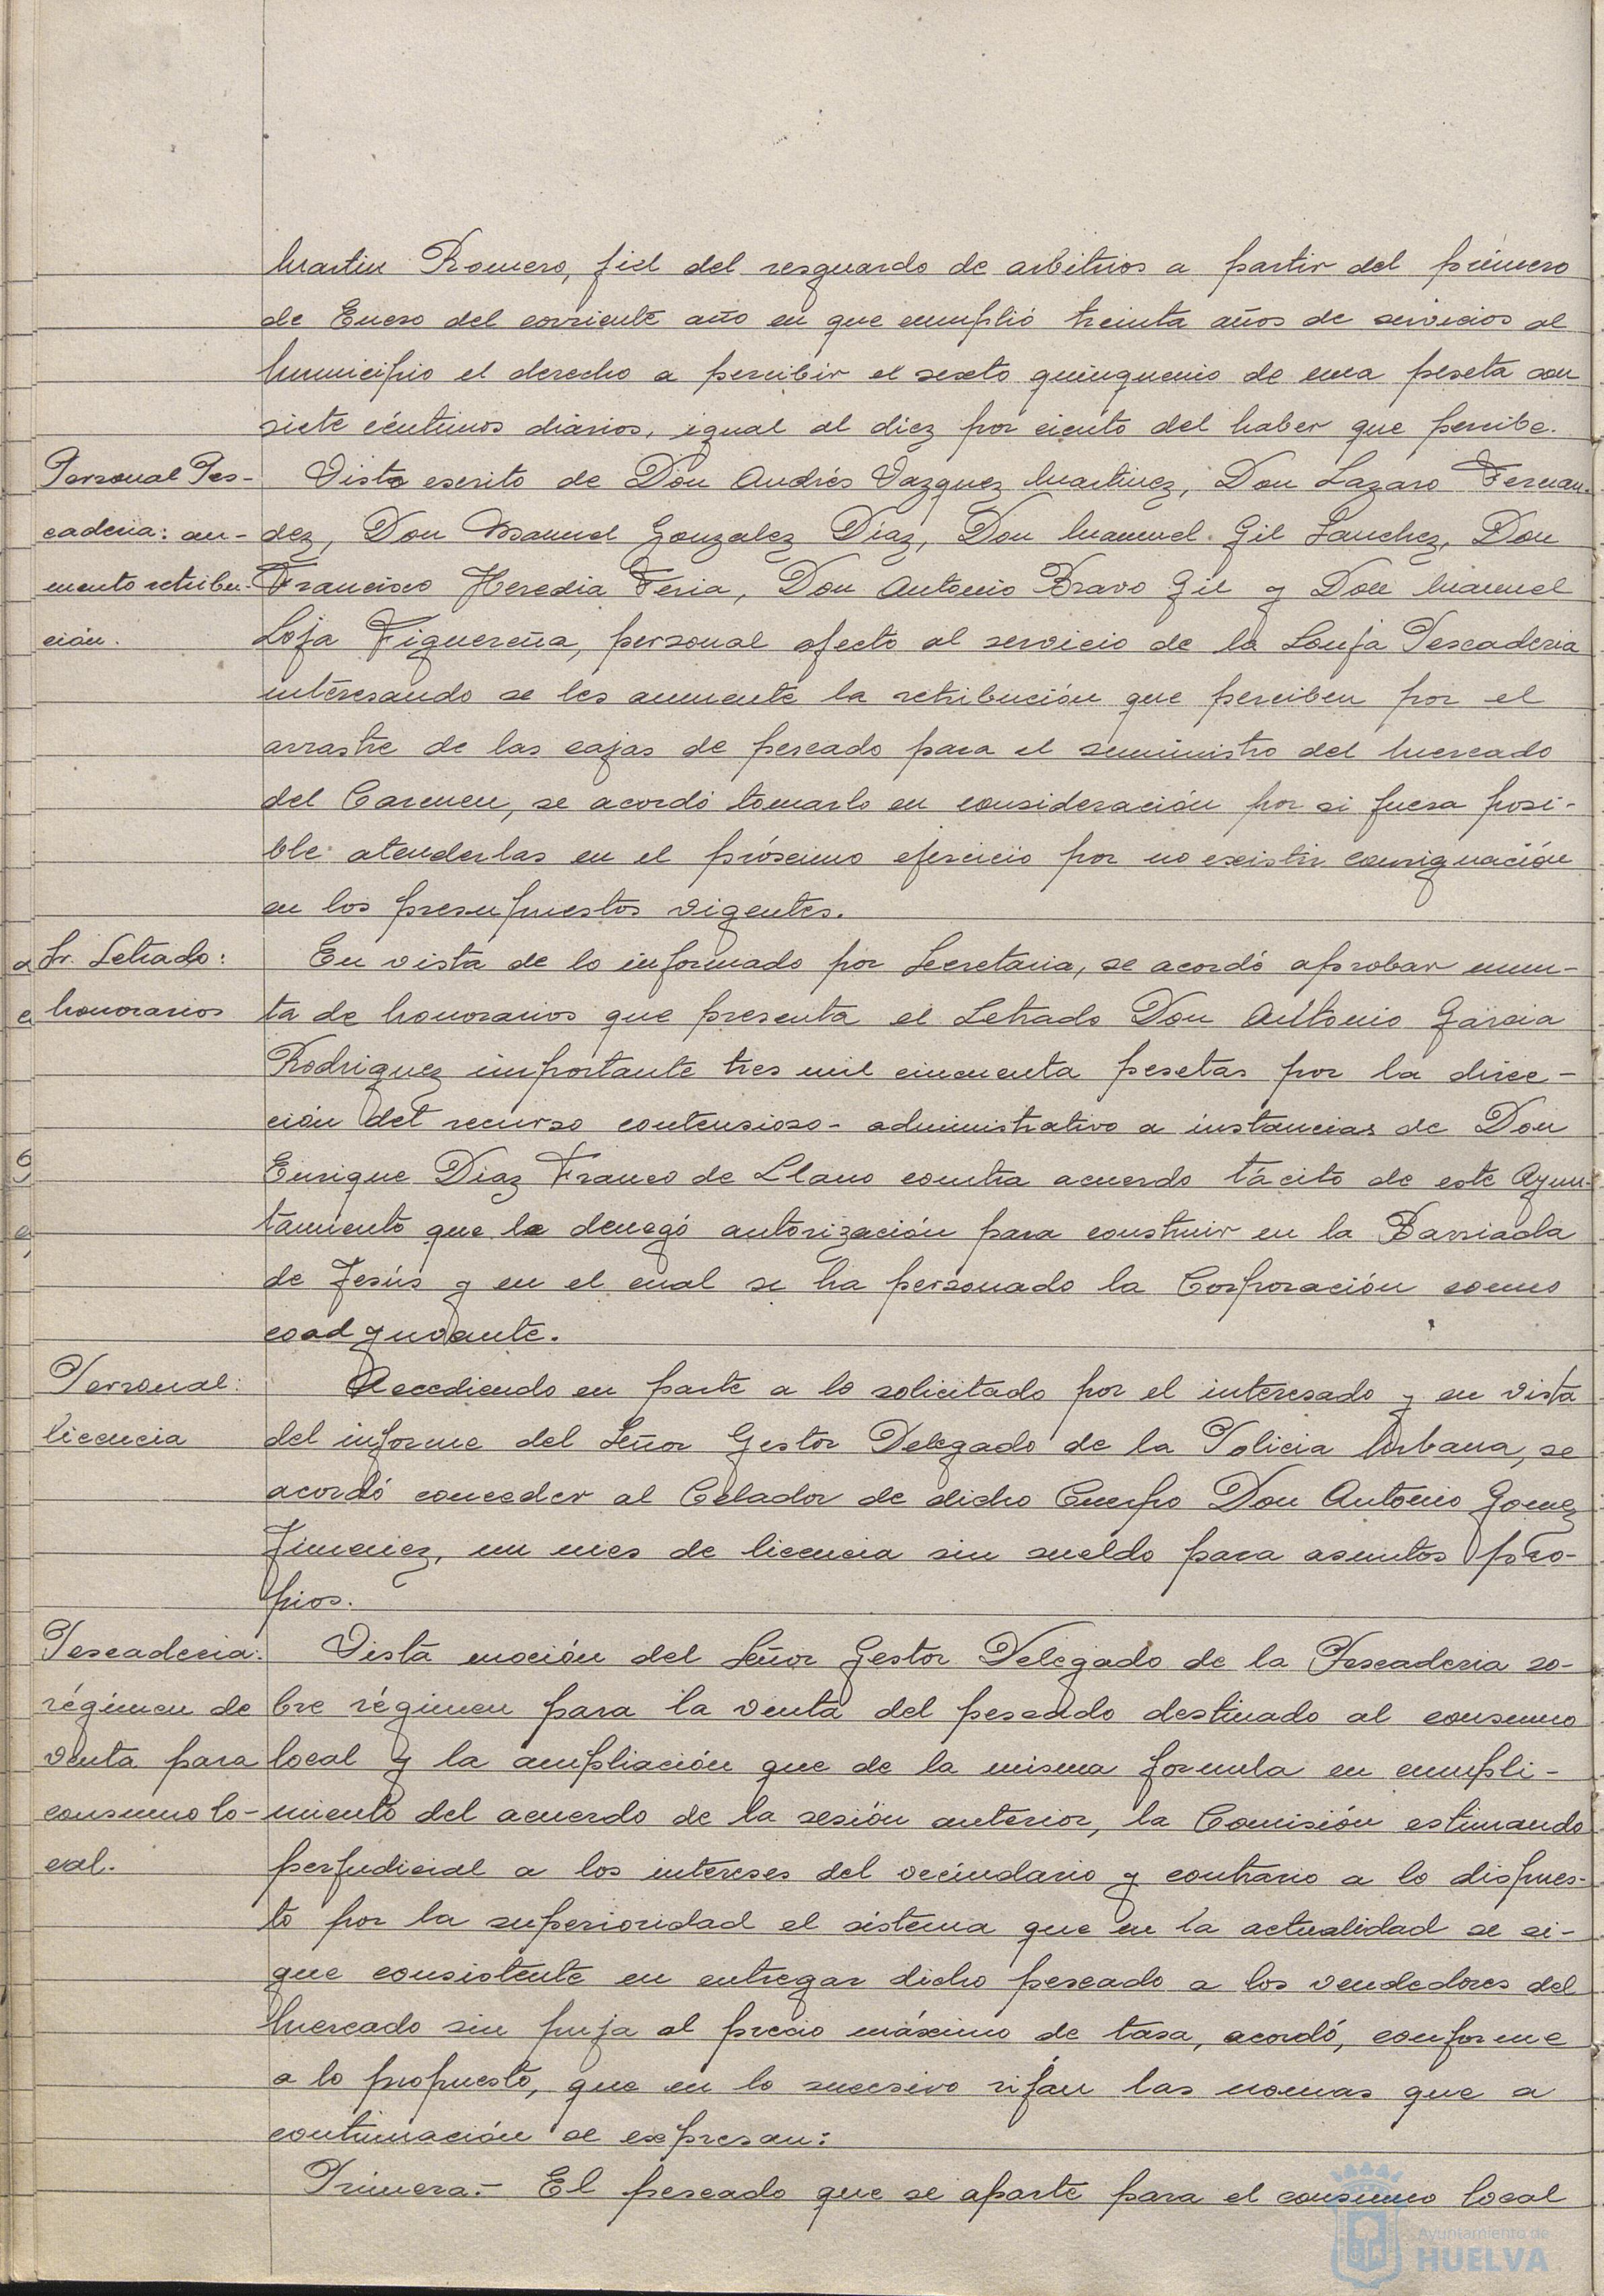 Martin Romero, fiel del resguardo de arbitrios a partir del primero
de Enero del corriente año en que cumplió treinta años de servicios al
Municipio el derecho a percibir el sexto quinquenio de una peseta con
siete céntimos diarios, igual al diez por ciento del haber que percibe.
Personal Pes-
caderia: au-
mento retribu-
ción.
Vista escrito de Don Andrés Vazquez Martinez, Don Lazaro Fernan-
dez, Don Manuel Gonzalez Diaz, Don Manuel Gil Sanchez, Don
Francisco Heredia Feria, Don Antonio Bravo Gil y Don Manuel
Loja Figuereña, personal afecto al servicio de la Lonja Pescaderia
interesando se les aumente la retribución que perciben por el
arrastre de las cajas de pescado para el suministro del Mercado
del Carmen, se acordó tomarlo en consideración por si fuera posi-
ble atenderlas en el próximo ejercicio por no existir consignación
en los presupuestos vigentes.
Sr. Letrado:
honorarios
En vista de lo informado por Secretaria, se acordó aprobar minu-
ta de honorarios que presenta el Letrado Don Antonio Garcia
Rodriguez importante tres mil cincuenta pesetas por la direc-
ción del recurso contensioso-administrativo a instancias de Don
Enrique Diaz Franco de Llano contra acuerdo tácito de este Ayun-
tamiento que le denegó autorización para construir en la Barriada
de Jesús y en el cual se ha personado la Corporación como
coadyuvante.
Personal:
licencia
Accediendo en parte a lo solicitado por el interesado y en vista
del informe del Señor Gestor Delegado de la Policia Urbana, se
acordó conceder al Celador de dicho Cuerpo Don Antonio Gomez
Jimenez, un mes de licencia sin sueldo para asuntos pro-
pios.
Pescaderia:
régimen de
venta para
consumo lo-
cal.
Vista moción del Señor Gestor Delegado de la Pescaderia so-
bre régimen para la venta del pescado destinado al consumo
local y la ampliación que de la misma formula en cumpli-
miento del acuerdo de la sesión anterior, la Comisión estimando
perjudicial a los intereses del vecindario y contrario a lo dispues-
to por la superioridad el sistema que en la actualidad se si-
gue consistente en entregar dicho pescado a los vendedores del
Mercado sin puja al precio máximo de tasa, acordó, conforme
a lo propuesto, que en lo sucesivo rijan las normas que a
continuación se expresan:
Primera.- El pescado que se aparte para el consumo local
Ayuntamiento de
HUELVA